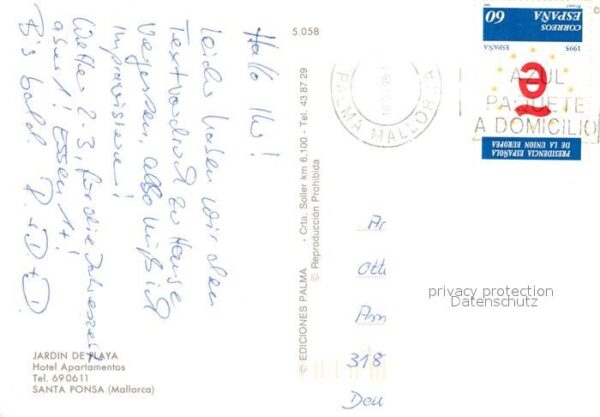 Hallo Ihr!
Leider haben wir den
Textvordruck zu Hause
vergessen, also muß ich
improvisieren!
Wetter 2-3, für die Jahreszeit
aber 1! Essen 1+!
Bis bald D. + D + D.
JARDIN DE PLAYA
Hotel Apartamentos
Tel. 690611
SANTA PONSA (Mallorca)
5.058
© EDICIONES PALMA - Crta. Soller km 6,100 - Tel. 43 87 29
© Reproducción Prohibida
PALMA MALLORCA
AZUL
PAQUETE
A DOMICILIO
60
CORREOS
ESPAÑA
1995
ESPAÑA
PRESIDENCIA ESPAÑOLA
DE LA UNION EUROPEA
Ar
Otti
Am
318
Deu
privacy protection
Datenschutz